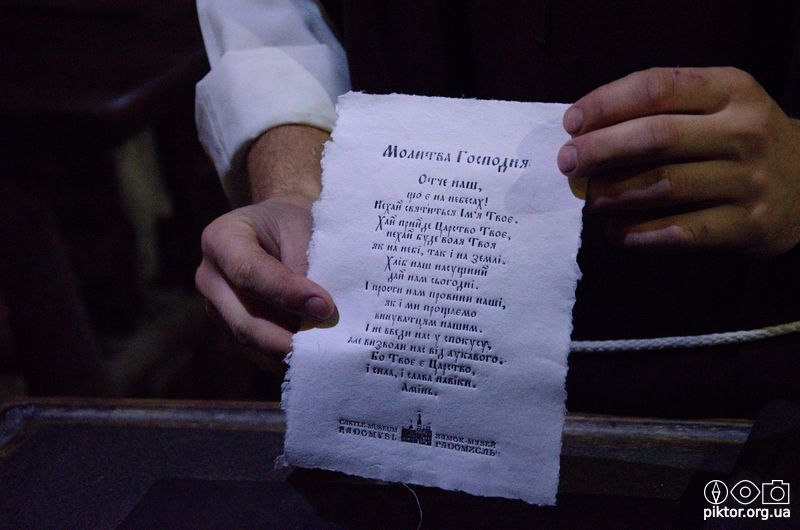 Молитва Господня
Отче наш,
що є на небесах!
Нехай святиться Ім'я Твоє.
Хай прийде Царство Твоє,
нехай буде воля Твоя
як на небі, так і на землі.
Хліб наш насущний
дай нам сьогодні.
І прости нам провини наші,
як і ми прощаємо
винуватцям нашим.
І не введи нас у спокусу,
але визволи нас від лукавого.
Бо Твоє є Царство,
і сила, і слава навіки.
Амінь.
CASTLE-MUSEUM ЗАМОК-МУЗЕЙ
RADOMYSL РАДОМИСЛЬ
piktor.org.ua